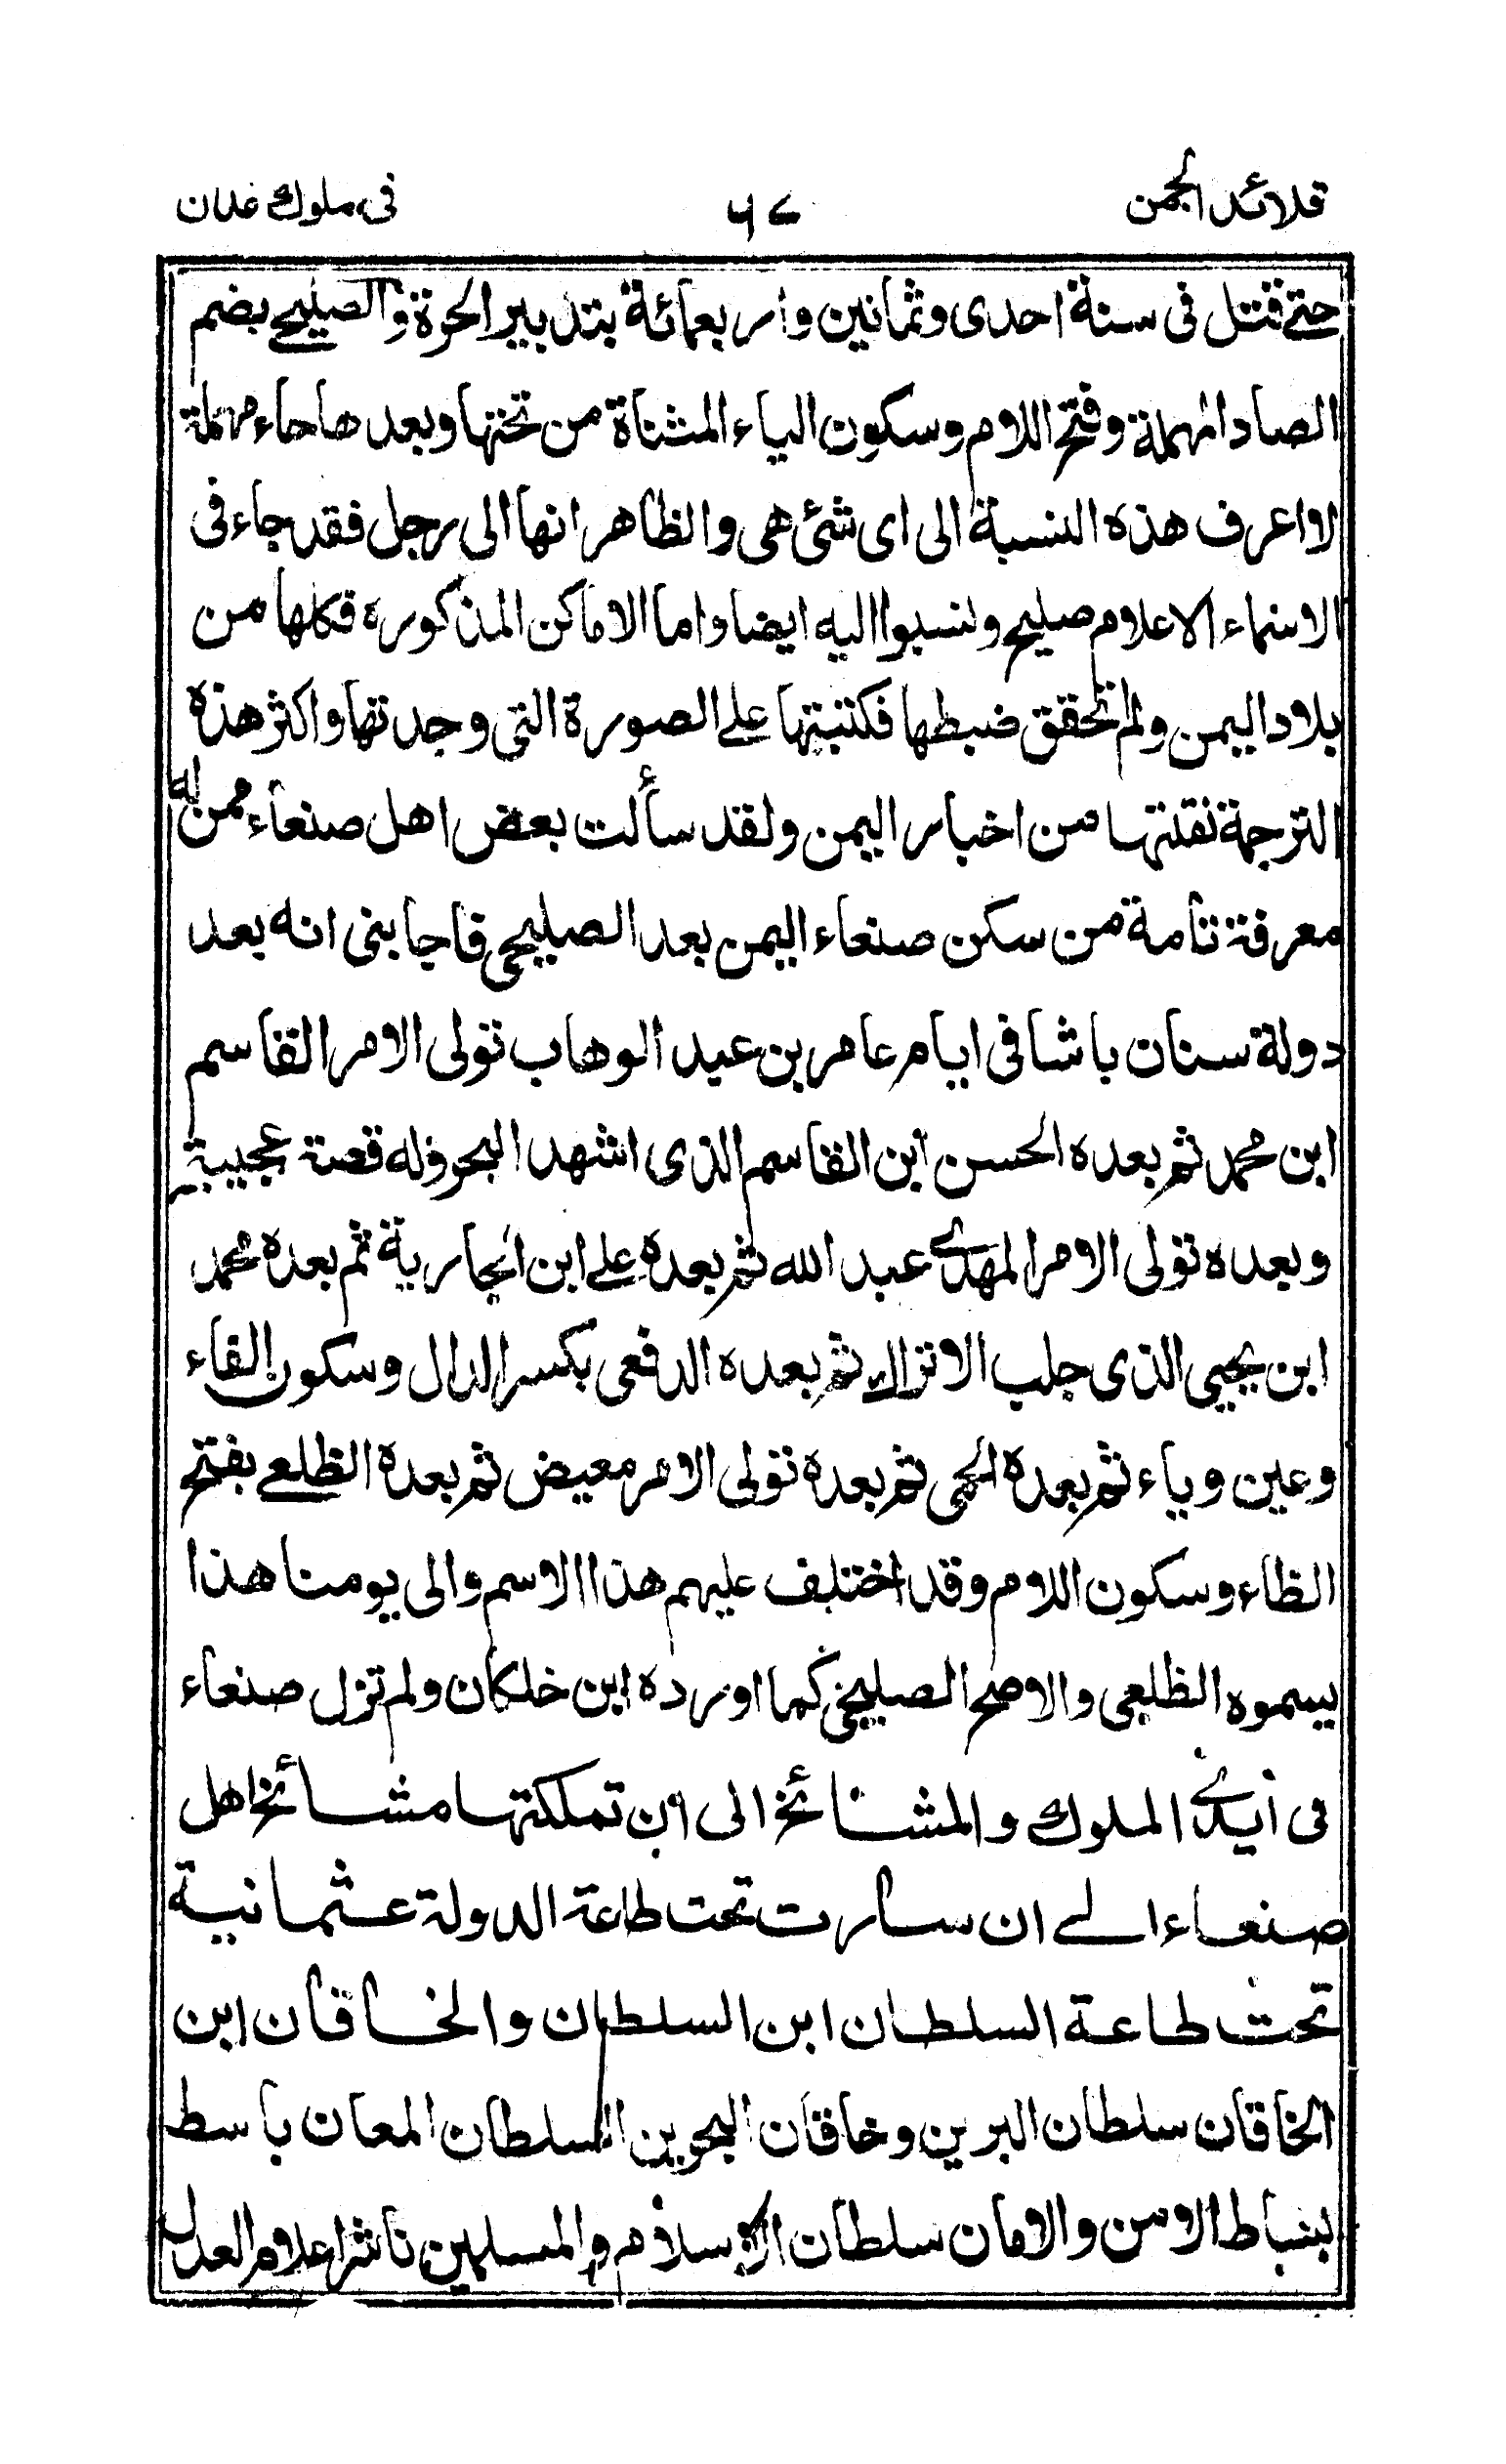 قلائد الجمن ٦٧ فى ملوك عدن
حتى قتل فى سنة احدى وثمانين واربعمائة بتدبير الحرة والصليحى بضم
الصاد المهملة وفتح اللام وسكون الياء المثناة من تحتها وبعدها حاء مهملة
لا اعرف هذه النسبة الى اى شئ هى والظاهر انها الى رجل فقد جاء فى
الاسماء الاعلام صليح ونسبوا اليه ايضا واما الاماكن المذكوره فكلها من
بلاد اليمن ولم تحقق ضبطها فكتبتها على الصورة التى وجدتها واكثر هذه
الترجمة نقلتها من اخبار اليمن ولقد سألت بعض اهل صنعاء ممن له
معرفة تامة من سكن صنعاء اليمن بعد الصليحى فاجابنى انه بعد
دولة سنان باشا فى ايام عامر بن عبد الوهاب تولى الامر القاسم
ابن محمد ثم بعده الحسن ابن القاسم الذى اشهد البحر وله قصة عجيبة
وبعده تولى الامر المهدى عبد الله ثم بعده على ابن الجارية ثم بعده محمد
ابن يحيى الذى جلب الاتراك ثم بعده الدفعى بكسر الدال وسكون الفاء
وعين وياء ثم بعده الحمى ثم بعده تولى الامر معيض ثم بعده الظلعى بفتح
الظاء وسكون اللام وقد اختلف عليهم هذا الاسم والى يومنا هذا
يسموه الظلعى والاصح الصليحى كما اورده ابن خلكان ولم تزل صنعاء
فى أيدى الملوك والمشائخ الى ان تملكتها مشائخ اهل
صنعاء الى ان سارت تحت طاعة الدولة عثمانية
تحت طاعة السلطان ابن السلطان والخاقان ابن
الخاقان سلطان البرين وخاقان البحرين السلطان المعان باسط
بساط الامن والامان سلطان الاسلام والمسلمين ناشر اعلام العدل